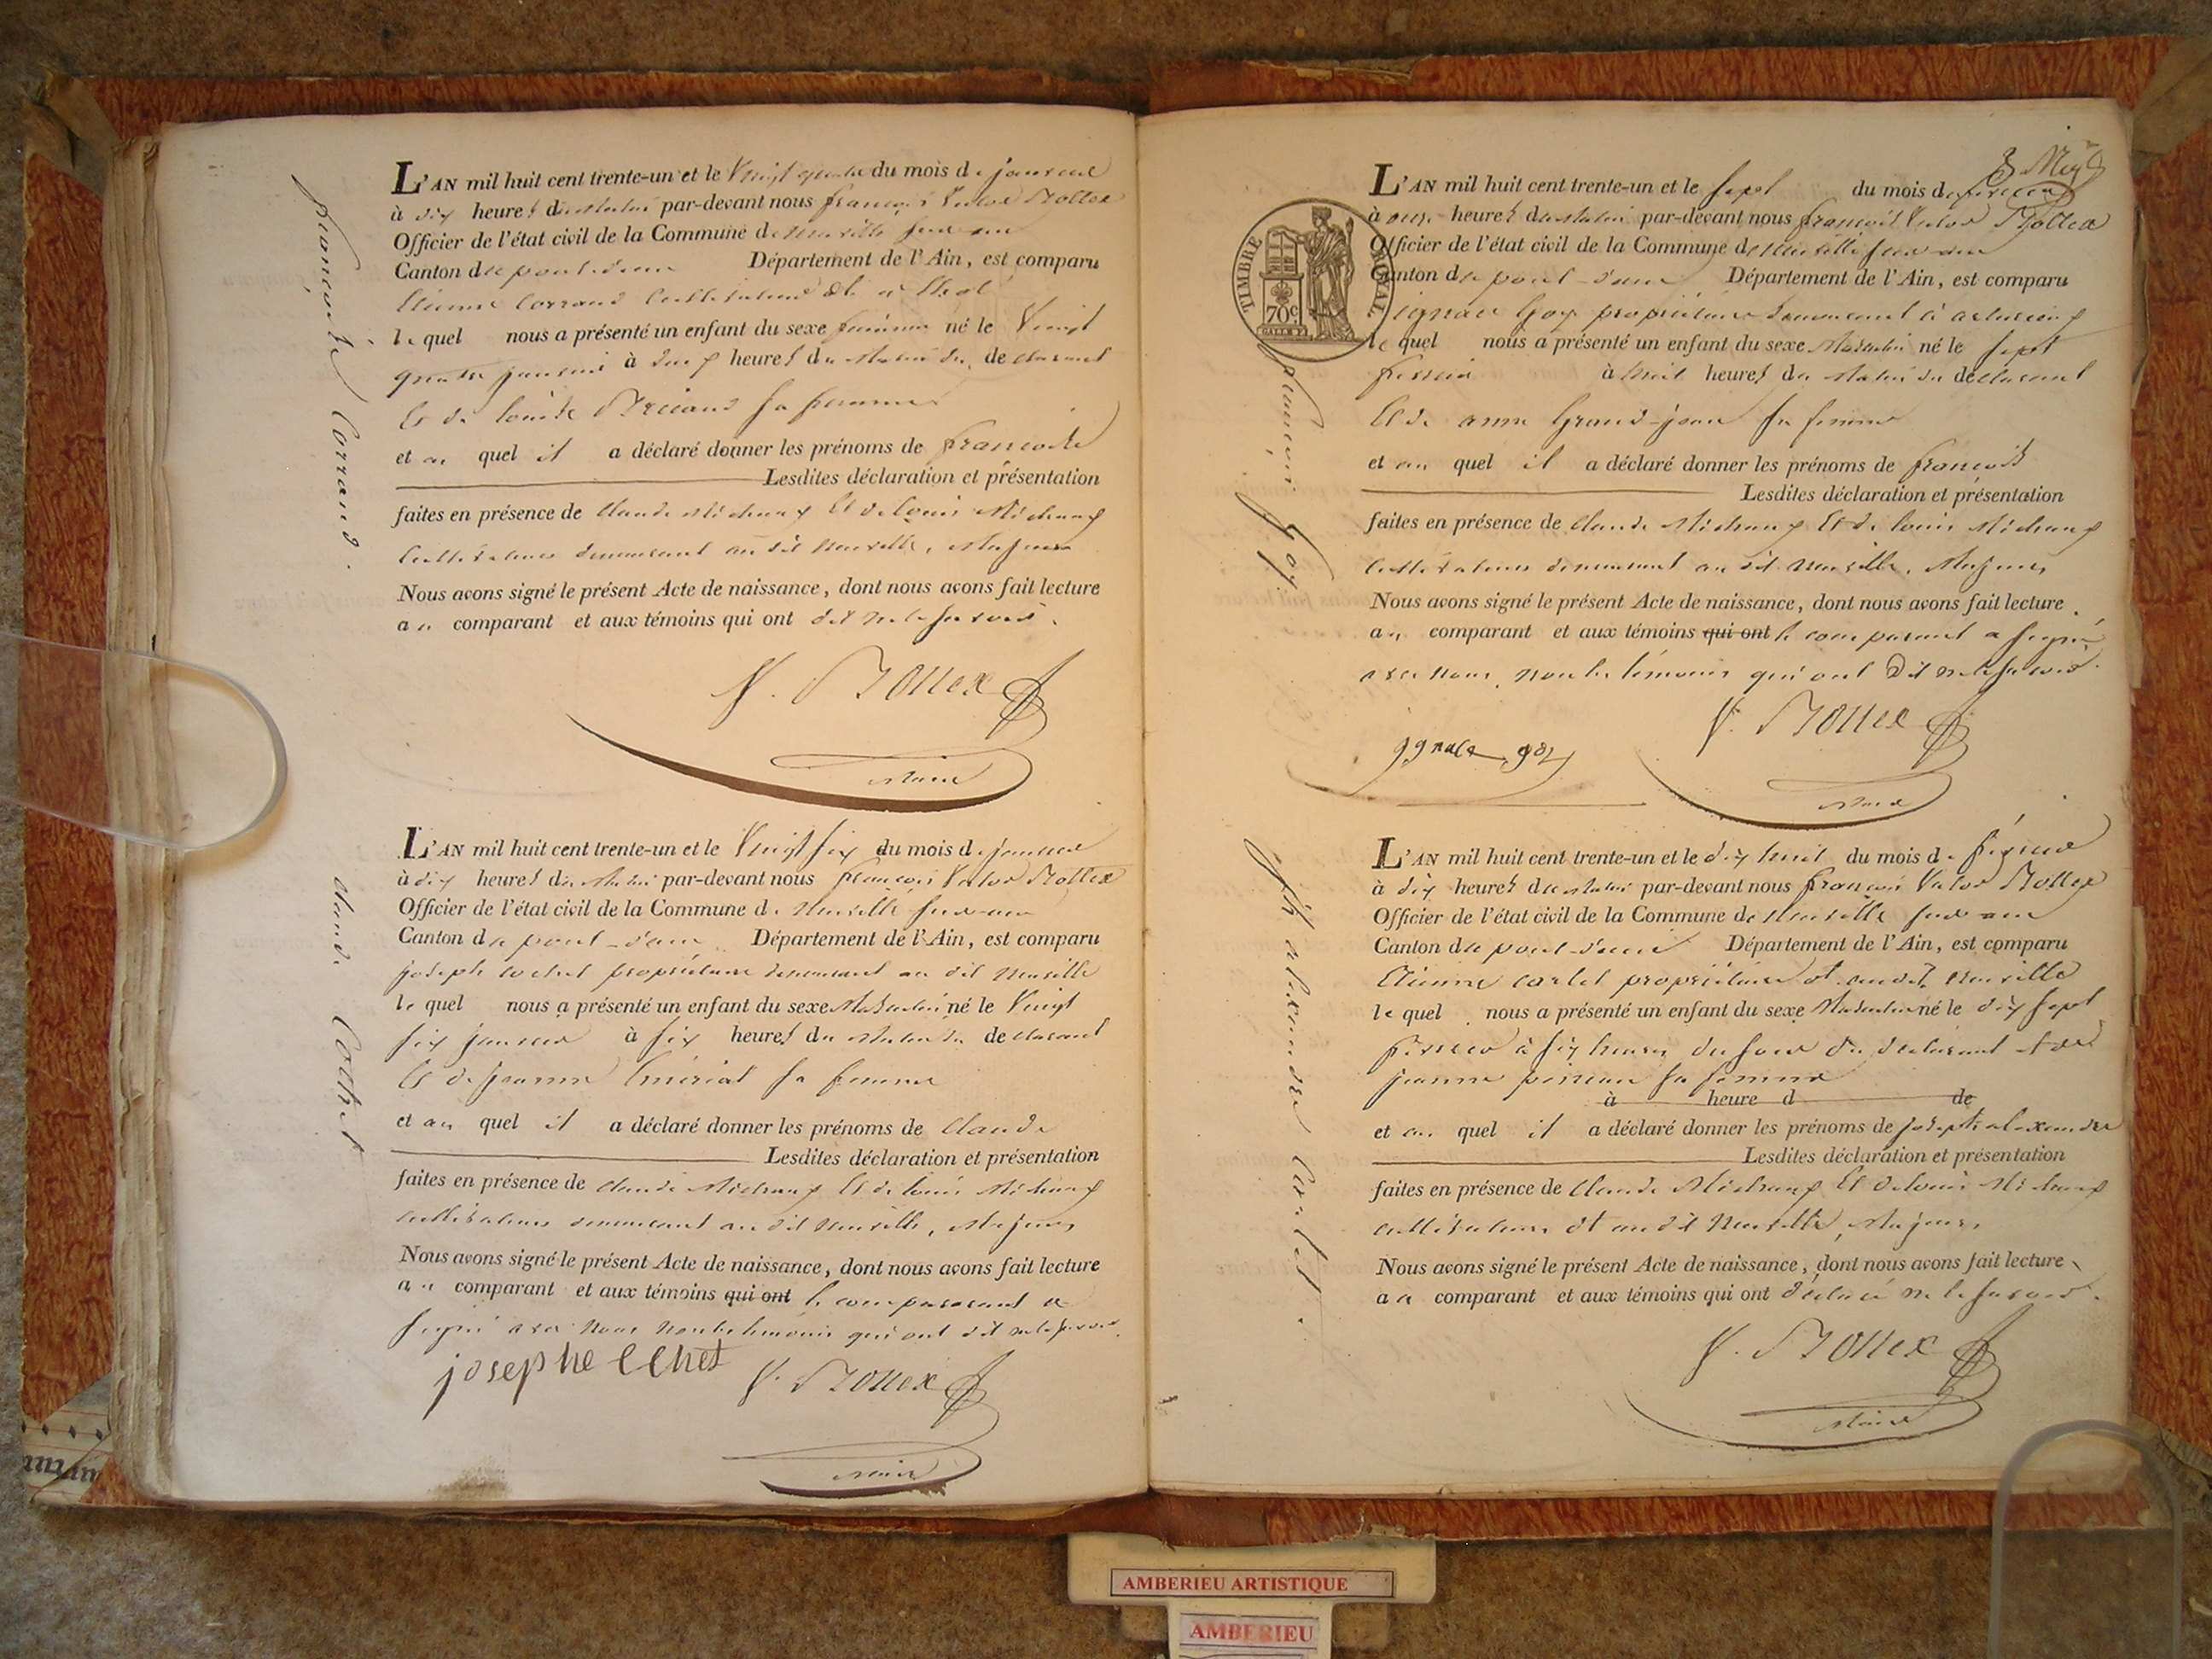 françoise Corrand.
L'AN mil huit cent trente-un et le Vingt quatre du mois de janvier
à dix heures du matin par-devant nous françois Victor Bottex
Officier de l'état civil de la Commune de Neuville sur ain
Canton de pont-d'ain Département de l'Ain, est comparu
Etienne Corrand Cultivateur
le quel nous a présenté un enfant du sexe féminin né le Vingt
quatre janvier à heures du matin du declarant
Et de Louise sa femme
et au quel il a déclaré donner les prénoms de françoise
Lesdites déclaration et présentation
faites en présence de Claude Michaux Et de Louis Michaux
Cultivateurs demeurant au dit Neuville, Majeurs
Nous avons signé le présent Acte de naissance, dont nous avons fait lecture
au comparant et aux témoins qui ont dit ne le savoir.
V. Bottex
Maire
Claude Cochet
L'AN mil huit cent trente-un et le Vingt six du mois de janvier
à dix heures du matin par-devant nous françois Victor Bottex
Officier de l'état civil de la Commune de Neuville sur-ain
Canton de pont-d'ain Département de l'Ain, est comparu
joseph cochet propriétaire demeurant au dit Neuville
le quel nous a présenté un enfant du sexe Masculin né le Vingt
six janvier à six heures du matin du declarant
Et de jeanne sa femme
et au quel il a déclaré donner les prénoms de Claude
Lesdites déclaration et présentation
faites en présence de Claude Michaux Et de Louis Michaux
cultivateurs demeurant au dit Neuville, Majeurs
Nous avons signé le présent Acte de naissance, dont nous avons fait lecture
au comparant et aux témoins qui ont le comparant a
signé avec nous non les témoins qui ont dit ne le savoir.
josephe CChet V. Bottex
Maire
TIMBRE ROYAL
70c
françois goy.
L'AN mil huit cent trente-un et le sept du mois de fevrier
à onze heures du matin par-devant nous françois Victor Bottex
Officier de l'état civil de la Commune de Neuville sur ain
Canton de pont-d'ain Département de l'Ain, est comparu
ignace Goy propriétaire demeurant à
le quel nous a présenté un enfant du sexe Masculin né le sept
fevrier à huit heures du Matin du déclarant
Et de anne Grand-jean sa femme
et au quel il a déclaré donner les prénoms de françois
Lesdites déclaration et présentation
faites en présence de Claude Michaux Et de Louis Michaux
Cultivateurs demeurant au dit Neuville, Majeurs
Nous avons signé le présent Acte de naissance, dont nous avons fait lecture
au comparant et aux témoins qui ont le comparant a signé
avec nous, non les témoins qui ont Dit ne le savoir.
V. Bottex
jgnace goy
Maire
jph alexandre Cartet.
L'AN mil huit cent trente-un et le dix huit du mois de février
à dix heures du matin par-devant nous françois Victor Bottex
Officier de l'état civil de la Commune de Neuville sur ain
Canton de pont-d'ain Département de l'Ain, est comparu
Etienne cartet propriétaire dt audit Neuville
le quel nous a présenté un enfant du sexe Masculin né le dix sept
fevrier à six heures du soir du declarant et de
jeanne sa femme
à heure d de
et au quel il a déclaré donner les prénoms de joseph alexandre
Lesdites déclaration et présentation
faites en présence de Claude Michaux Et de Louis Michaux
cultivateurs dt au dit Neuville, Majeurs,
Nous avons signé le présent Acte de naissance, dont nous avons fait lecture
au comparant et aux témoins qui ont déclaré ne le savoir.
V. Bottex
Maire
AMBERIEU ARTISTIQUE
AMBERIEU